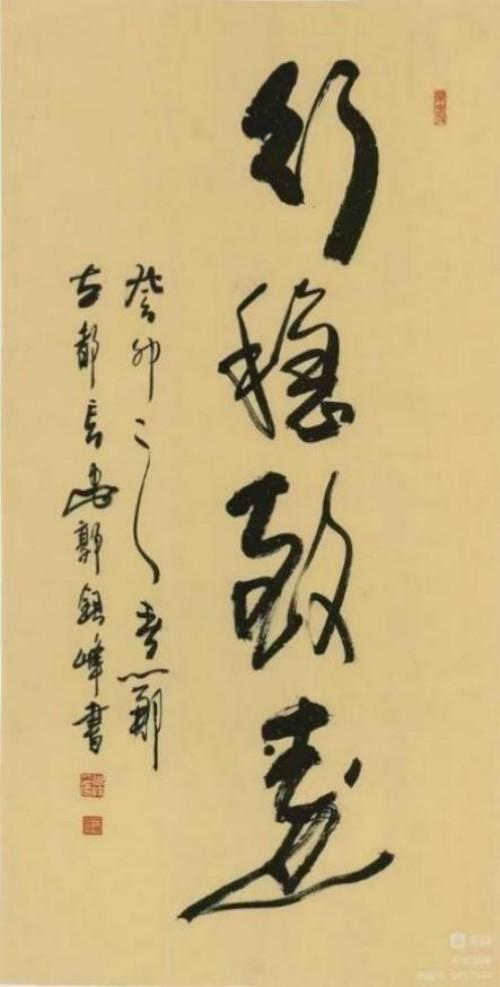 行穩致遠
癸卯之春
古都長安郭鎮峰書